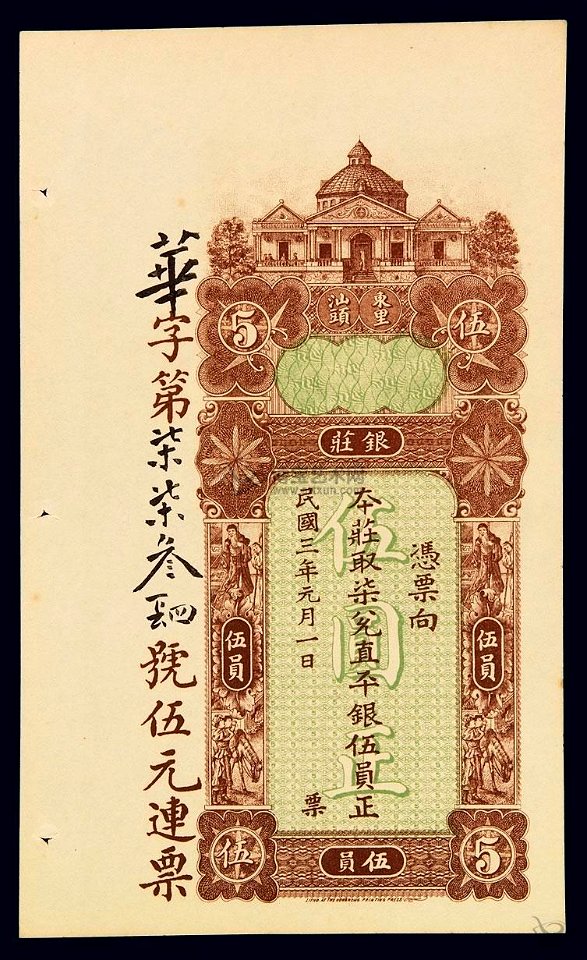 汕頭
東里
5
伍
銀莊
憑票向
本莊取柒兌直平銀伍員正
民國三年元月一日
票
伍圓正
伍員
伍員
伍
伍員
5
華字第柒柒叁號伍元連票
LITHO AT THE HONGKONG PRINTING PRESS